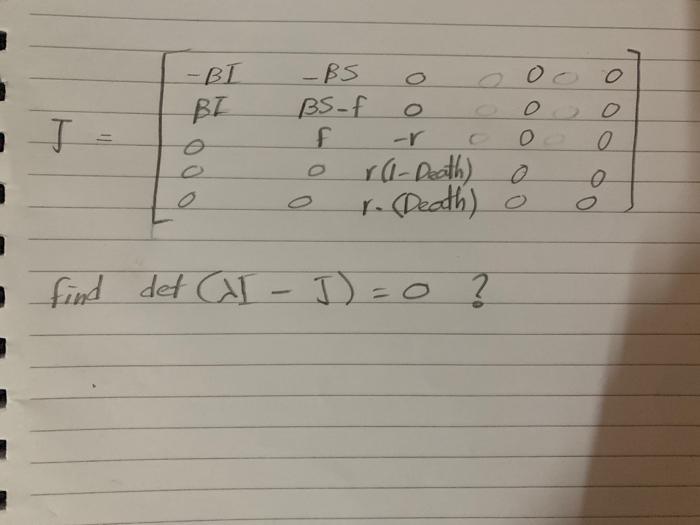 -βI -βS 0 0 0
βI βS-f 0 0 0
J = 0 f -r 0 0
0 0 r(1-Death) 0 0
0 0 r.(Death) 0 0
find det (λI - J) = 0 ?